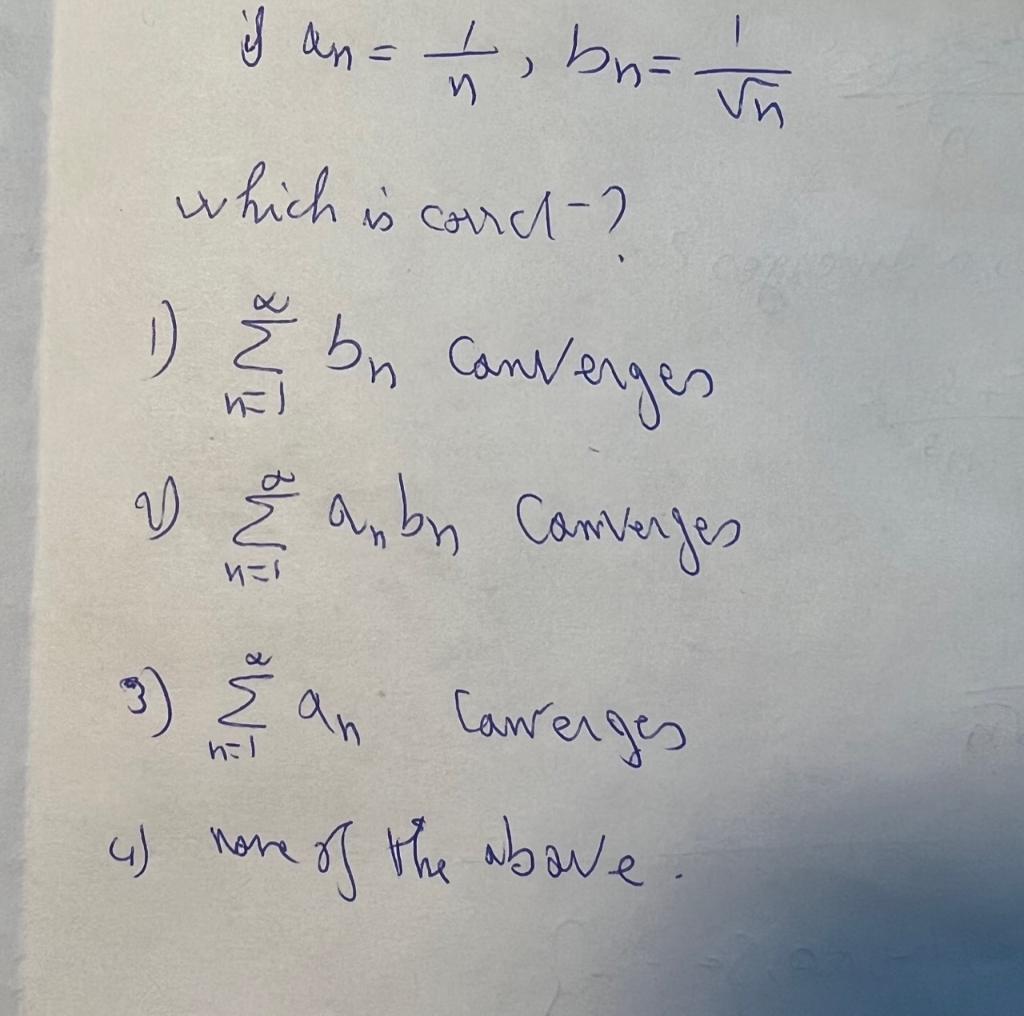 if an = 1/n, bn = 1/√n
which is correct-?
1) ∞ Σ n=1 bn converges
2) ∞ Σ n=1 an bn converges
3) ∞ Σ n=1 an converges
4) none of the above.